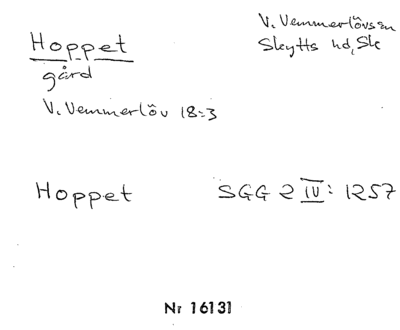 Hoppet
gård
V. Vemmerlöv 18:3
V. Vemmerlövs sn
Skytts hd, Sk
Hoppet SGG 2 IV: 1257
Nr 16131